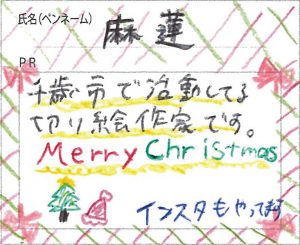 氏名(ペンネーム)
麻蓮
PR
千歳市で活動してる
切り絵作家です。
Merry Christmas
インスタもやってます